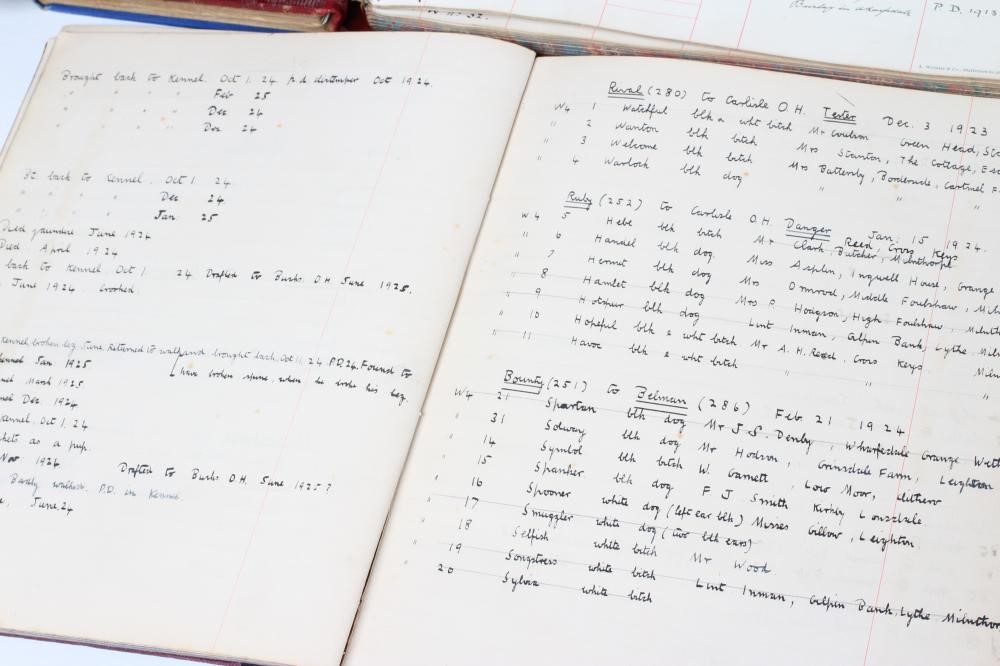 W No 32.
P.D. 1913
Brought back to Kennel. Oct 1. 24. p.d. distemper Oct 1924.
" " " " Feb 25
" " " " Dec 24
" " " " Dec 24
back to Kennel. Oct 1. 24.
" " " " Dec 24.
" " " " Jan. 25
Died jaundice June 1924
Died April 1924
back to Kennel. Oct 1. 24 Drafted to Bucks. O.H. June 1925.
June 1924. Crooked.
Kennel, broken leg. June. Returned to walk and brought back. Oct 11. 24. P.D. 24. Found to
have broken spine, when he broke his leg.
Jan 1925
March 1925.
Dec 1924
Kennel, Oct. 1. 24
as a pup.
Nov 1924 Drafted to Bucks O.H. June 1925?
Badly walked. P.D. in Kennel
June, 24
Rival (280) to Carlisle O.H. Tester Dec. 3 1923
W4 1 Watchful blk & wht bitch Mr Coulson Green Head,
" 2 Wanton blk bitch Mrs Stanton, The Cottage,
" 3 Welcome blk bitch Mrs Battersby, Borderside, Cartmel F
" 4 Warlock blk dog " "
Ruby (252) to Carlisle O.H. Danger Jan. 15 1924.
W4 5 Hebe blk bitch Mr Reed, Cross Keys
Clark, Butcher, Milnthorpe
" 6 Handel blk dog Miss Ashlin, Ingwell House, Grange
" 7 Hermit blk dog Mrs Ormrod, Middle Foulshaw, Miln
" 8 Hamlet blk dog Mrs P. Hodgson, High Foulshaw, Milnth
" 9 Hotspur blk dog Lint Inman, Gilpin Bank, Lythe. Miln
" 10 Hopeful blk & wht bitch Mr A. H. Reed, Cross Keys. Miln
" 11 Havoc blk & wht bitch " " "
Bounty (251) to Belman (286) Feb 21 1924
W4 21 Spartan blk dog Mr J. S. Denby, Wharfedale Grange Weth
" 31 Solway blk dog Mr Hodson, Grinsdale Farm, Leighton
" 14 Symbol blk bitch W. Garnett, Low Moor, Clitheroe
" 15 Spanker blk dog F. J. Smith Kirkby Lonsdale.
" 16 Spooner white dog (left ear blk) Misses Gillow, Leighton.
" 17 Smuggler white dog (two blk ears)
" 18 Selfish white bitch Mr Wood.
" 19 Songstress white bitch Lint Inman, Gilpin Bank, Lythe Milnthor
" 20 Sylvia white bitch